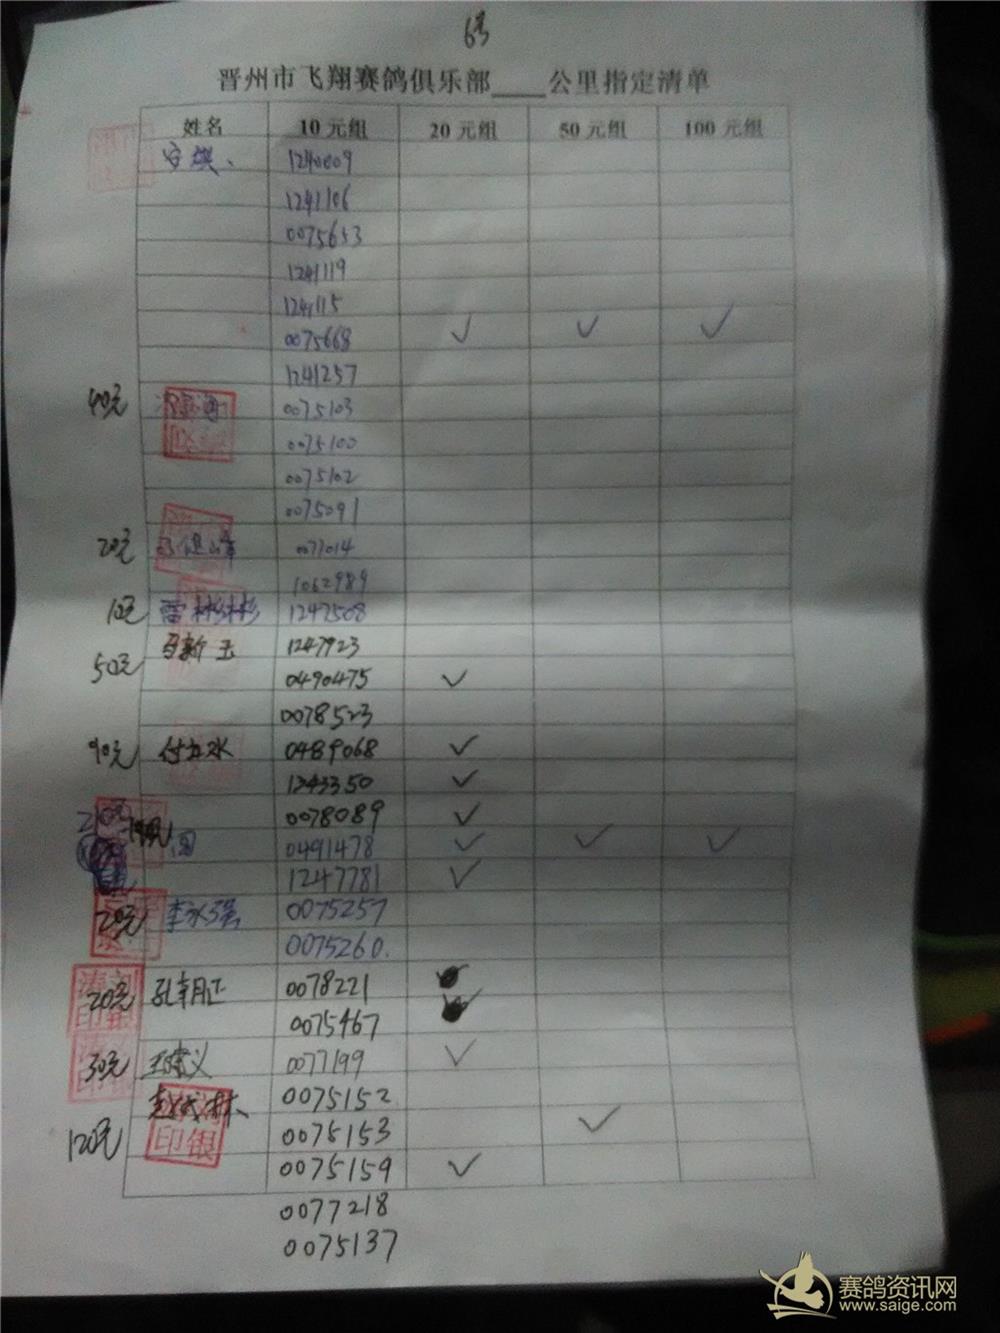 6号
晋州市飞翔赛鸽俱乐部____公里指定清单
姓名 10元组 20元组 50元组 100元组
1240009
1241106
0075653
1241119
1241115
0075668 ✓ ✓ ✓
1241257
40元 0075103
0075100
0075102
0075091
20元 0077014
1062989
10元 雷彬彬 1247508
马新玉 1247923
50元 0490475 ✓
0078523
90元 0489068 ✓
1243350 ✓
0078089 ✓
210元 0491478 ✓ ✓ ✓
1247781 ✓
20元 李永强 0075257
0075260.
20元 孔朝正 0078221
0075467
30元 王建义 0077199 ✓
赵成林 0075152
120元 印银 0075153 ✓
0075159 ✓
0077218
0075137
赛鸽资讯网
www.saige.com